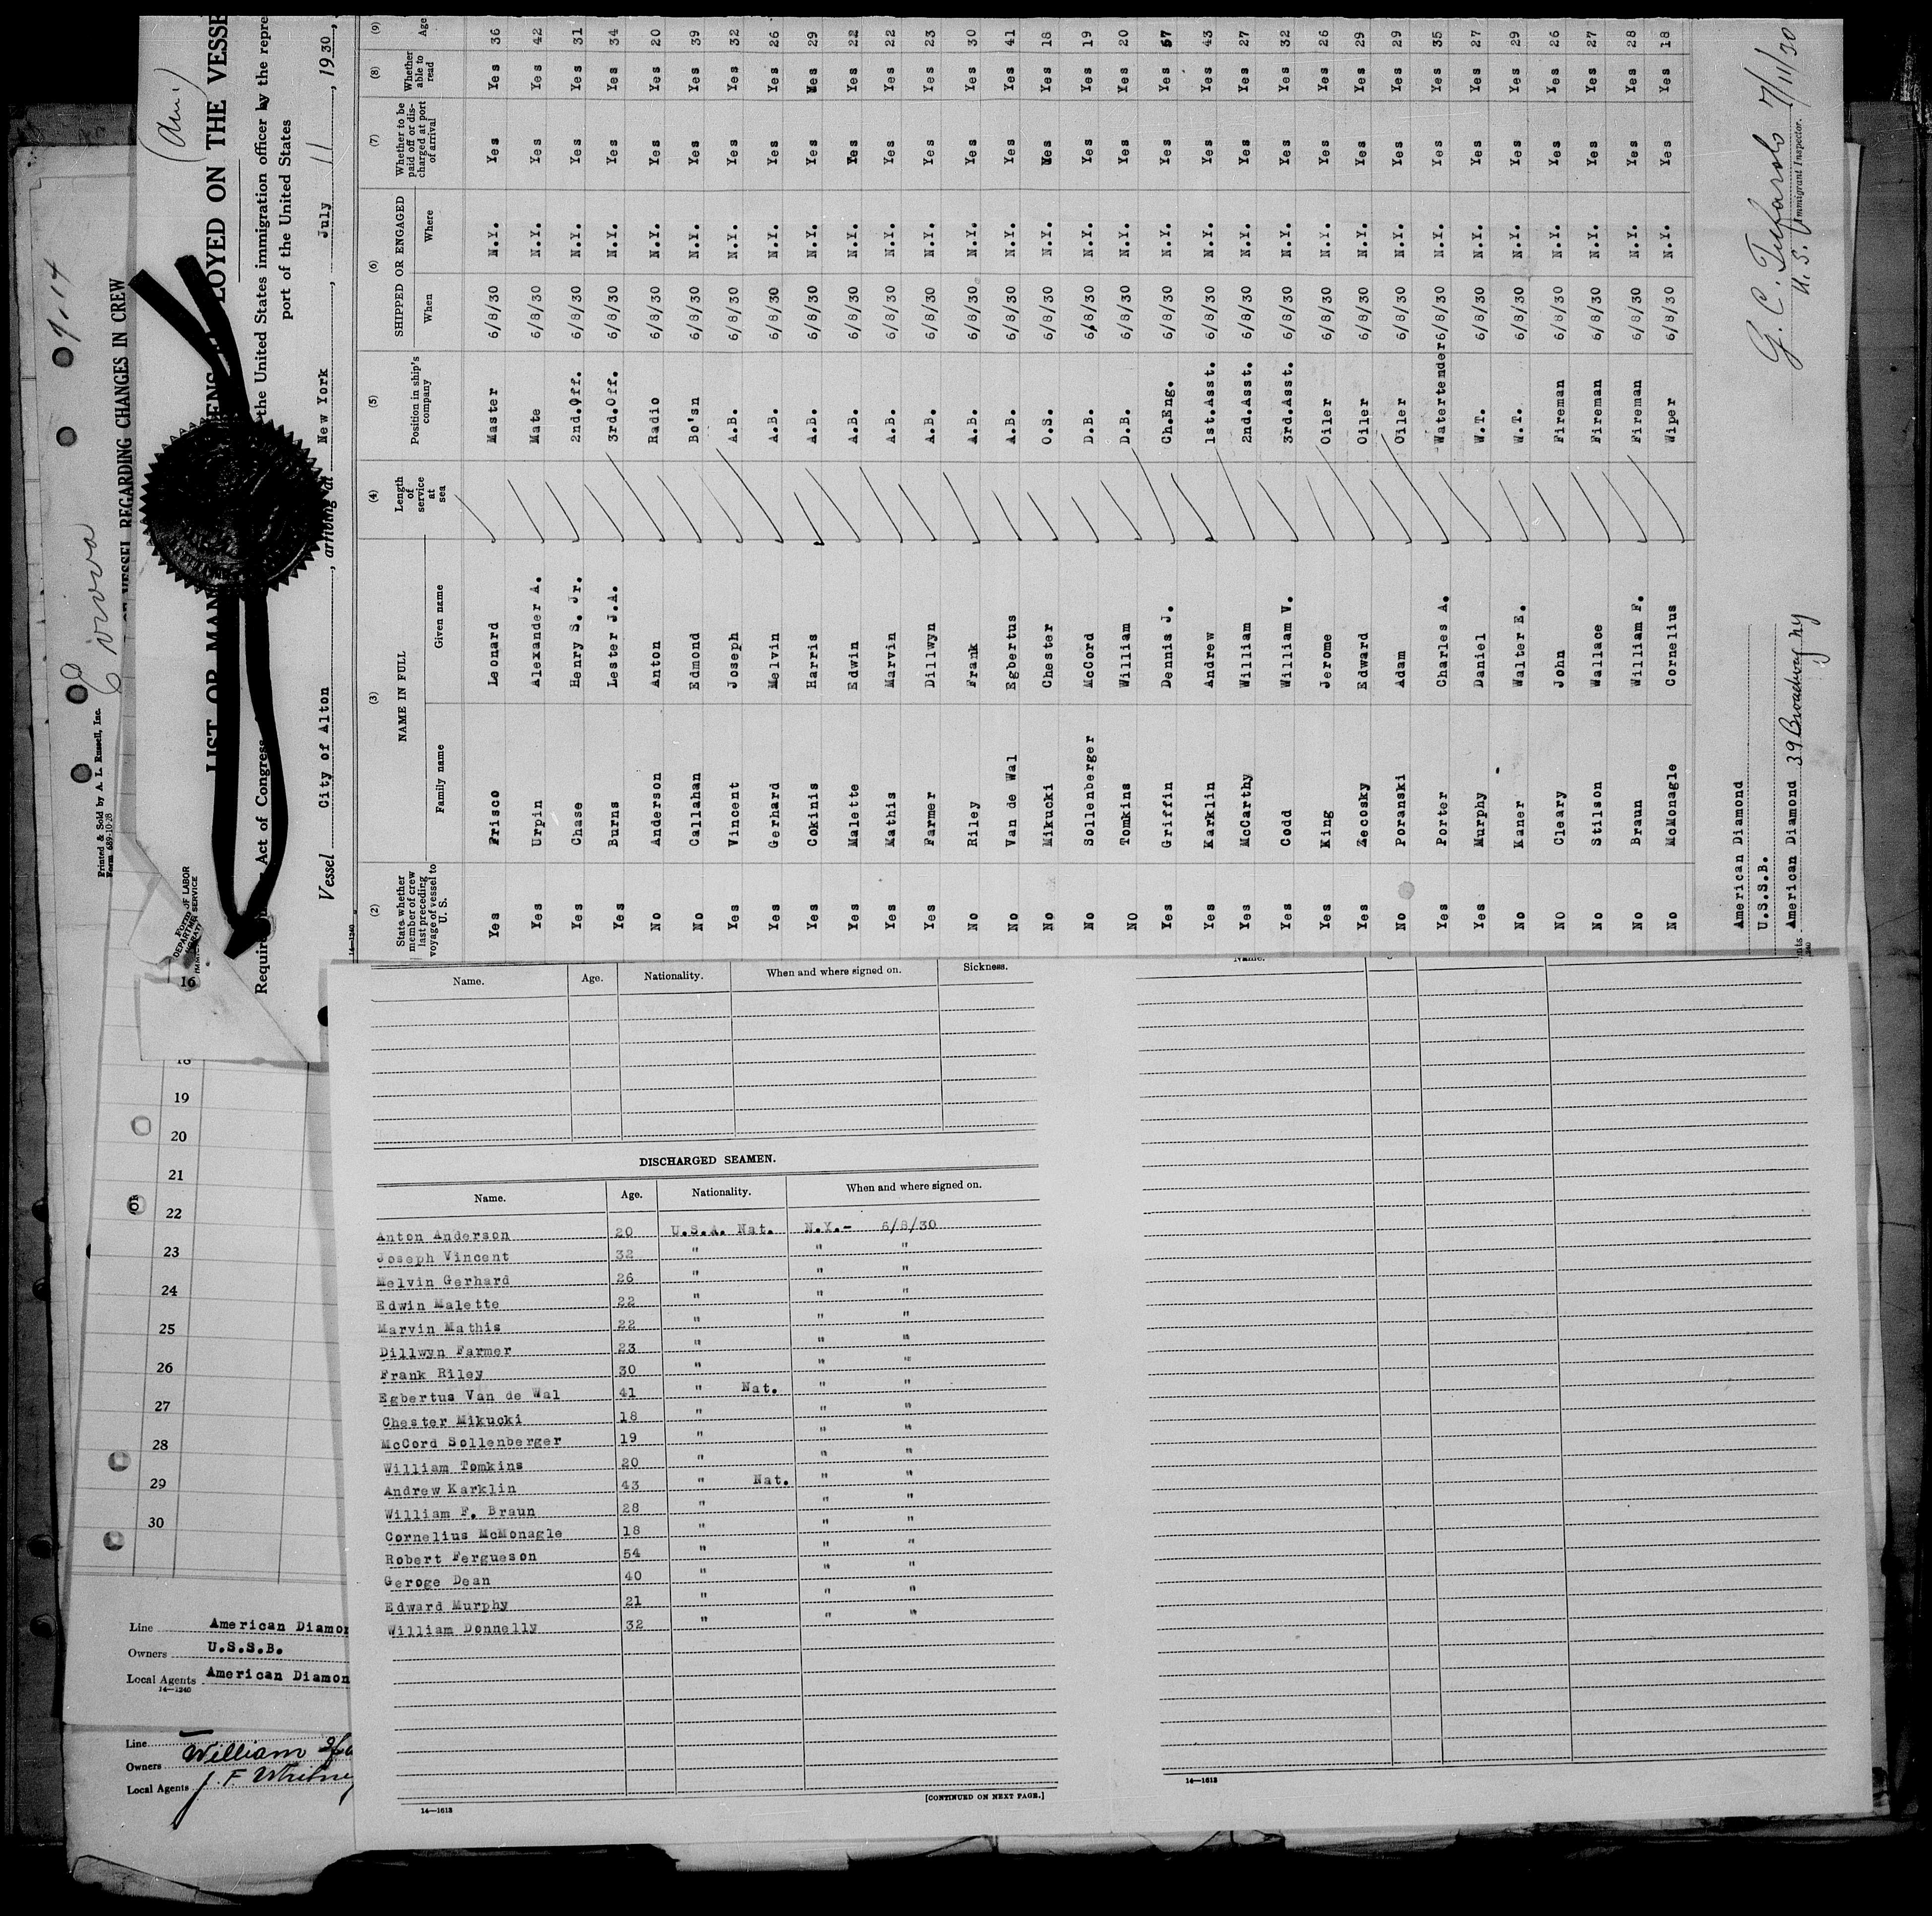 (Am.)
LIST OR MAN
LOYED ON THE VESSE
Act of Congress
the United States immigration officer by the repre
port of the United States
Vessel City of Alton, arriving at New York, July 11, 1930,
(2) (3) (4) (5) (6) (7) (8) (9)
State whether member of crew last preceding voyage of vessel to U. S.
NAME IN FULL
Family name Given name
Length of service at sea
Position in ship's company
SHIPPED OR ENGAGED
When Where
Whether to be paid off or discharged at port of arrival
Whether able to read
Age
Yes Frisco Leonard Master 6/8/30 N.Y. Yes Yes 36
Yes Urpin Alexander A. Mate 6/8/30 N.Y. Yes Yes 42
Yes Chase Henry S. Jr. 2nd.Off. 6/8/30 N.Y. Yes Yes 31
Yes Burns Lester J.A. 3rd.Off. 6/8/30 N.Y. Yes Yes 34
No Anderson Anton Radio 6/8/30 N.Y. Yes Yes 20
No Callahan Edmond Bo'sn 6/8/30 N.Y. Yes Yes 39
Yes Vincent Joseph A.B. 6/8/30 N.Y. Yes Yes 32
Yes Gerhard Melvin A.B. 6/8/30 N.Y. Yes Yes 26
Yes Cokinis Harris A.B. 6/8/30 N.Y. Yes Yes 29
Yes Malette Edwin A.B. 6/8/30 N.Y. Yes Yes 22
Yes Mathis Marvin A.B. 6/8/30 N.Y. Yes Yes 22
Yes Farmer Dillwyn A.B. 6/8/30 N.Y. Yes Yes 23
No Riley Frank A.B. 6/8/30 N.Y. Yes Yes 30
No Van de Wal Egbertus A.B. 6/8/30 N.Y. Yes Yes 41
No Mikucki Chester O.S. 6/8/30 N.Y. Yes Yes 18
No Sollenberger McCord D.B. 6/8/30 N.Y. Yes Yes 19
NO Tomkins William D.B. 6/8/30 N.Y. Yes Yes 20
Yes Griffin Dennis J. Ch.Eng. 6/8/30 N.Y. Yes Yes 57
Yes Karklin Andrew 1st.Asst. 6/8/30 N.Y. Yes Yes 43
Yes McCarthy William 2nd.Asst. 6/8/30 N.Y. Yes Yes 27
Yes Codd William V. 3rd.Asst. 6/8/30 N.Y. Yes Yes 32
Yes King Jerome Oiler 6/8/30 N.Y. Yes Yes 26
Yes Zecosky Edward Oiler 6/8/30 N.Y. Yes Yes 29
No Poranski Adam Oiler 6/8/30 N.Y. Yes Yes 29
Yes Porter Charles A. Watertender 6/8/30 N.Y. Yes Yes 35
Yes Murphy Daniel W.T. 6/8/30 N.Y. Yes Yes 27
No Kaner Walter E. W.T. 6/8/30 N.Y. Yes Yes 29
NO Cleary John Fireman 6/8/30 N.Y. Yes Yes 26
No Stilson Wallace Fireman 6/8/30 N.Y. Yes Yes 27
No Braun William F. Fireman 6/8/30 N.Y. Yes Yes 28
No McMonagle Cornelius Wiper 6/8/30 N.Y. Yes Yes 18
American Diamond
U.S.S.B.
American Diamond 39 Broadway NY
7/11/30
U. S. Immigrant Inspector.
REGARDING CHANGES IN CREW
Printed & Sold by A. L. Russell, Inc.
Form 689-10-28
14—1240
16
18
19
20
21
22
23
24
25
26
27
28
29
30
Line American Diamon
Owners U.S.S.B.
Local Agents American Diamon
14—1240
Line
Owners William
Local Agents J. F Whitney
Name. Age. Nationality. When and where signed on. Sickness.
DISCHARGED SEAMEN.
Name. Age. Nationality. When and where signed on.
Anton Anderson 20 U.S.A. Nat. N.Y.- 6/8/30
Joseph Vincent 32 " " "
Melvin Gerhard 26 " " "
Edwin Malette 22 " " "
Marvin Mathis 22 " " "
Dillwyn Farmer 23 " " "
Frank Riley 30 " " "
Egbertus Van de Wal 41 " Nat. " "
Chester Mikucki 18 " " "
McCord Sollenberger 19 " " "
William Tomkins 20 " " "
Andrew Karklin 43 " Nat. " "
William F. Braun 28 " " "
Cornelius McMonagle 18 " " "
Robert Fergueson 54 " " "
Geroge Dean 40 " " "
Edward Murphy 21 " " "
William Donnelly 32 " " "
[CONTINUED ON NEXT PAGE.]
14—1613
Name.
14—1613